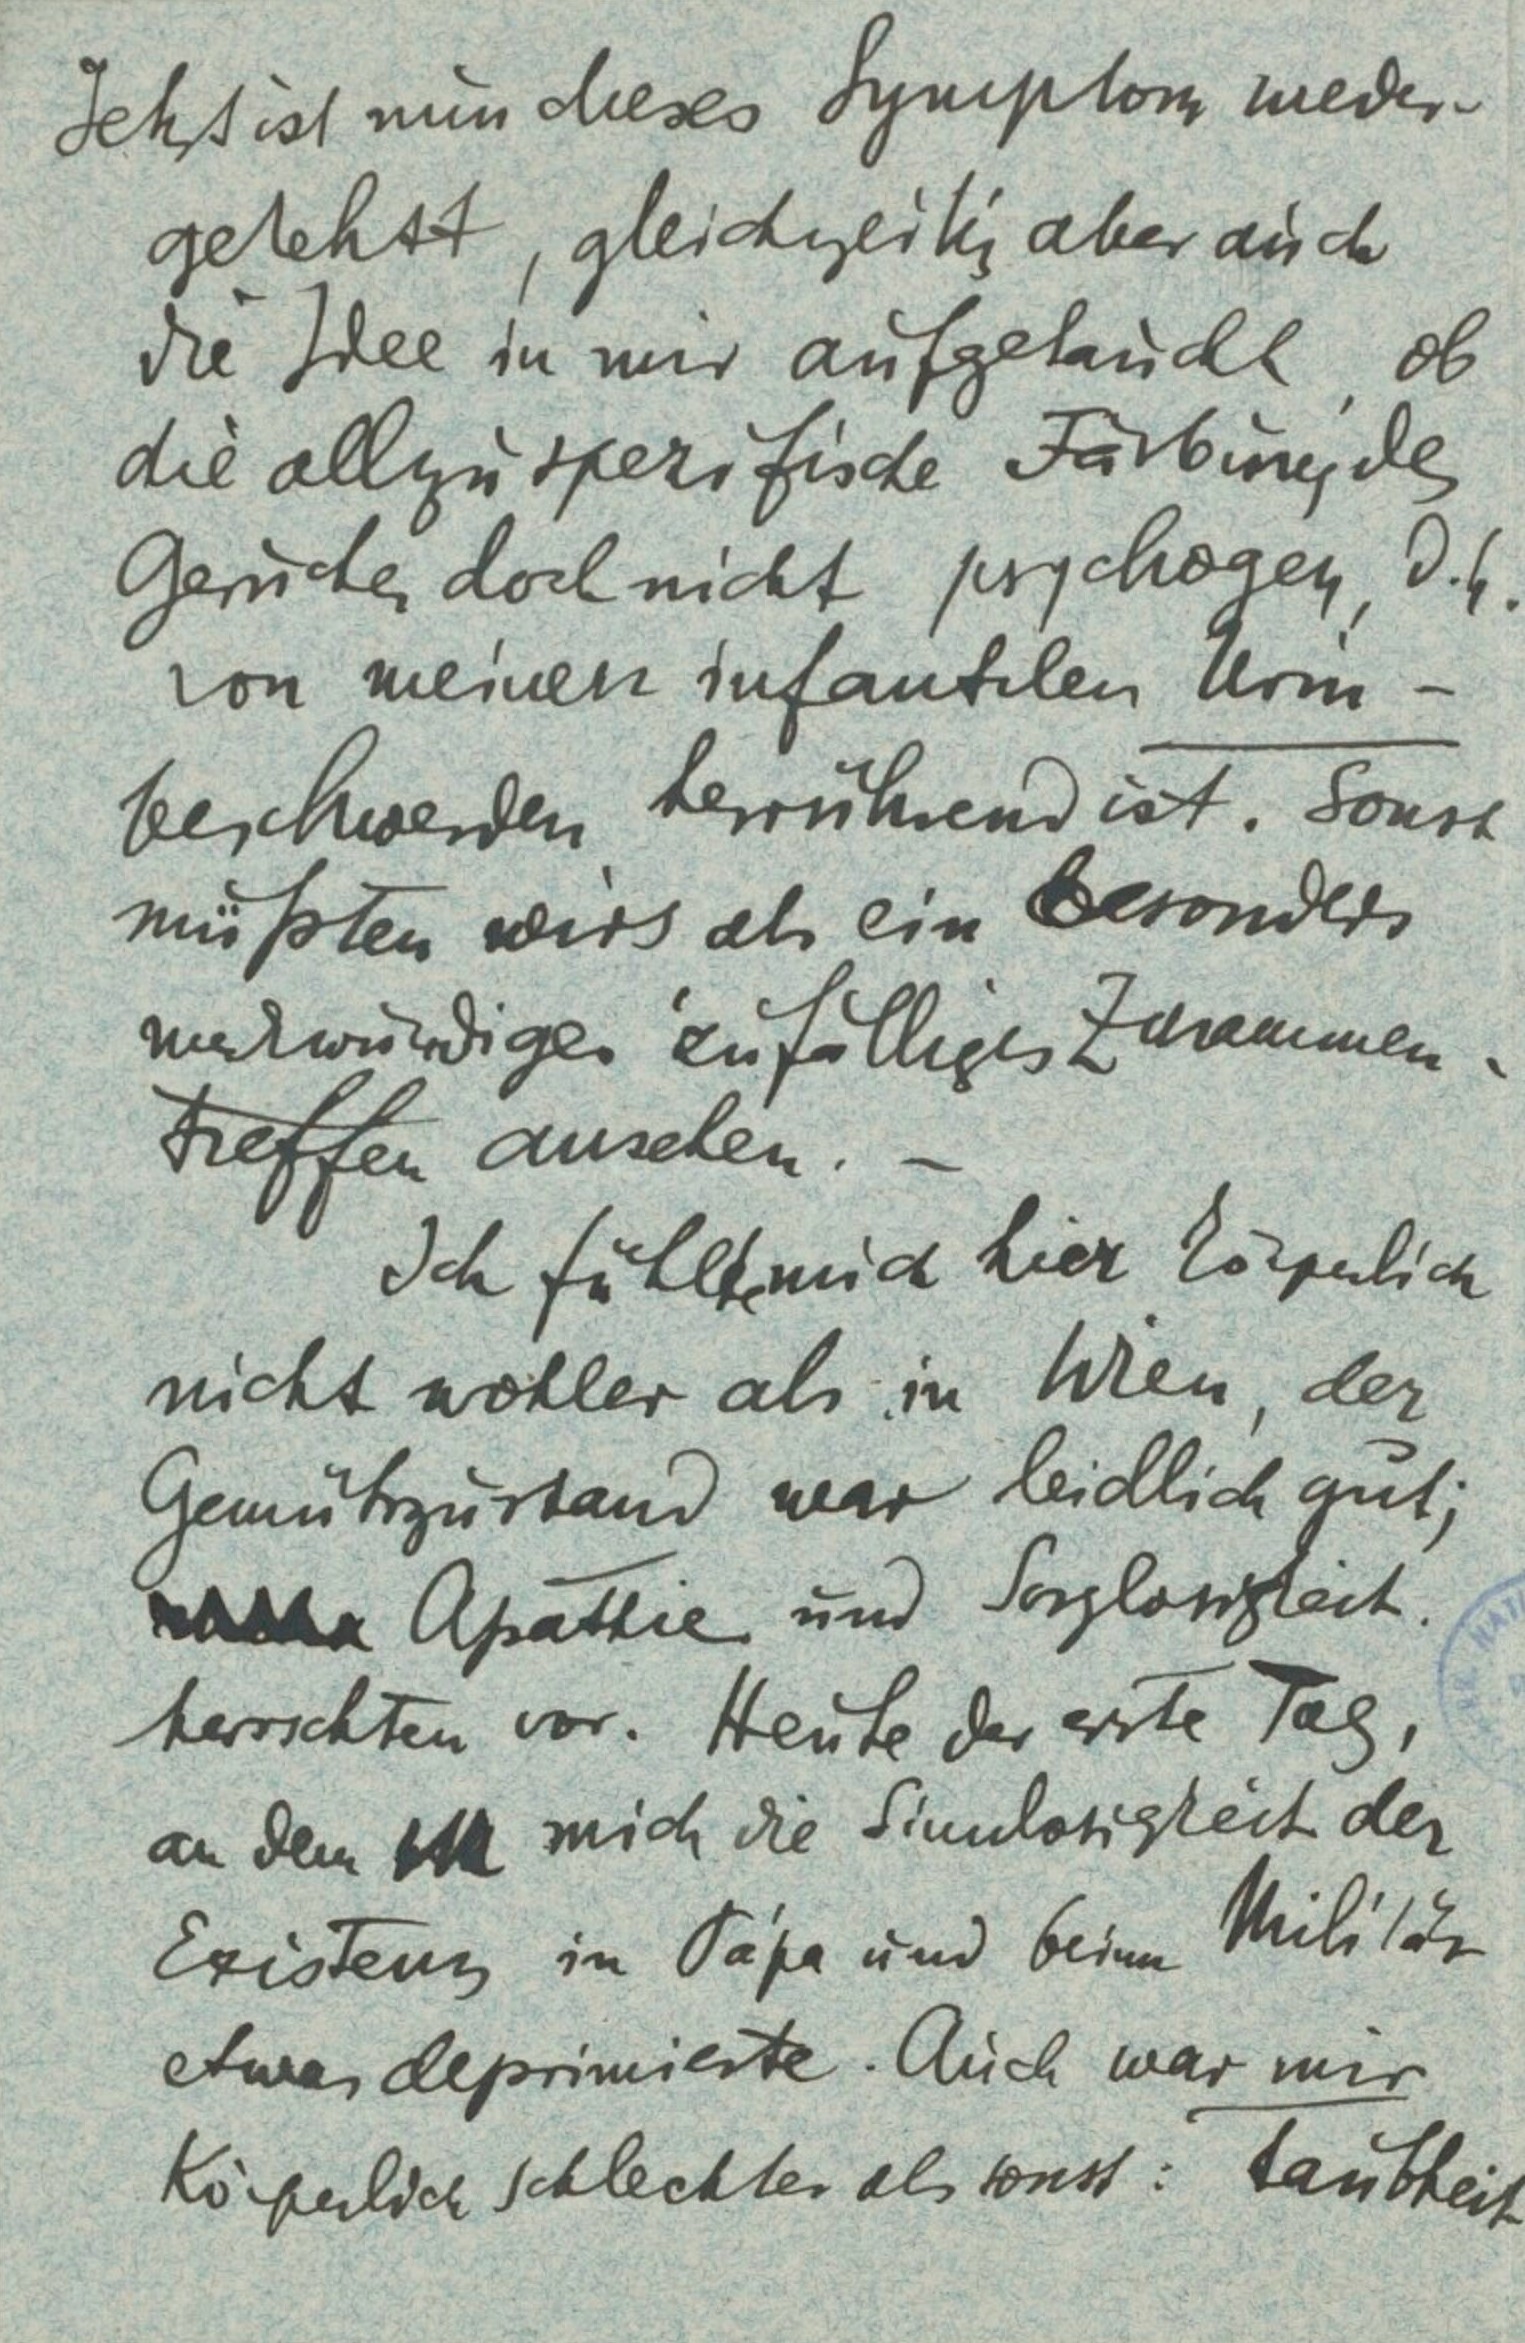 Jetzt ist nun dieses Symptom wieder-
gekehrt, gleichzeitig aber auch
die Idee in mir aufgetaucht, ob
die allzu spezifische Färbung des
Geruches doch nicht psychogen, d.h.
von meinen infantilen Urin-
beschwerden herrührend ist. Sonst
müßten wirs als ein besonders
merkwürdiges zufälliges Zusammen-
treffen ansehen. –
Ich fühlte mich hier körperlich
nicht wohler als in Wien, der
Gemütszustand war leidlich gut;
Apathie und Sorglosigkeit
herrschten vor. Heute der erste Tag,
an dem mich die Sinnlosigkeit der
Existenz in Pápa und beim Militär
etwas deprimierte. Auch war mir
Körperlich schlechter als sonst: Taubheit